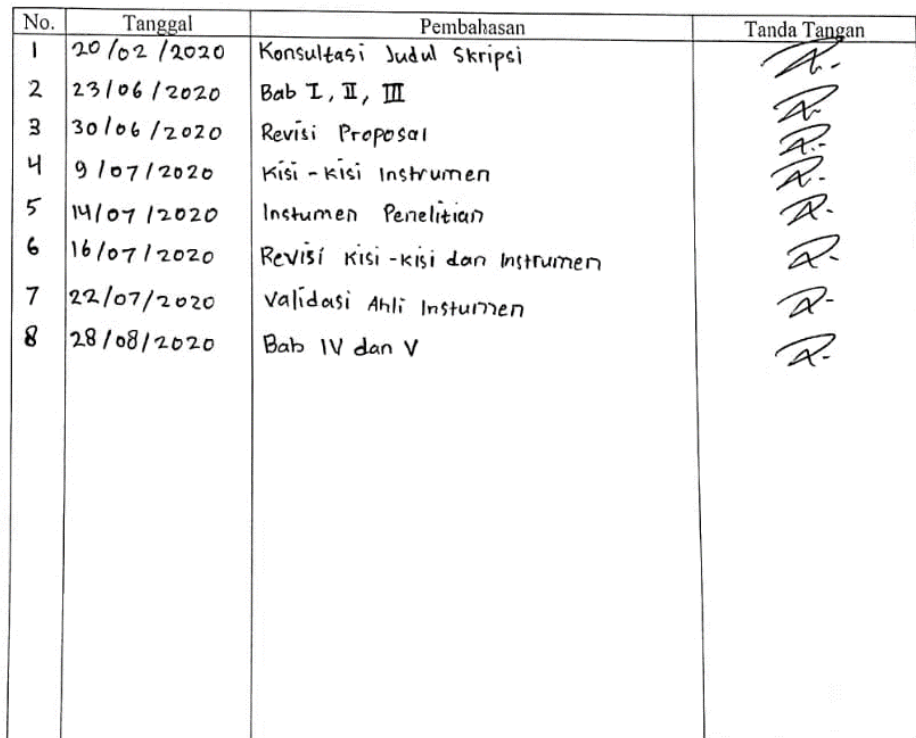 No. Tanggal Pembahasan Tanda Tangan
1 20/02/2020 Konsultasi Judul Skripsi
2 23/06/2020 Bab I, II, III
3 30/06/2020 Revisi Proposal
4 9/07/2020 Kisi-Kisi Instrumen
5 14/07/2020 Instumen Penelitian
6 16/07/2020 Revisi Kisi-Kisi dan Instrumen
7 22/07/2020 Validasi Ahli Instumen
8 28/08/2020 Bab IV dan V